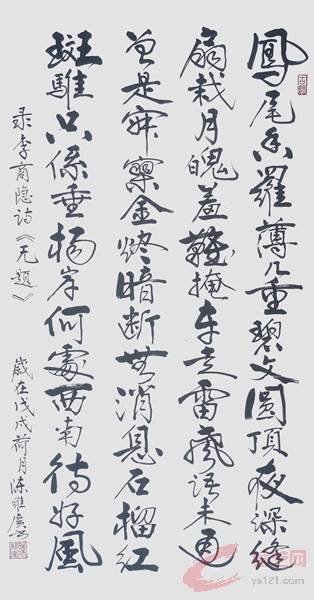 鳳尾香羅薄几重碧文圓頂夜深縫
扇栽月魄羞難掩车走雷聲语未通
曾是寂寥金烬暗断無消息石榴红
斑騅只係垂楊岸何處西南待好風
录李商隐诗《无题》
歲在戊戌荷月陈維
ys121.com